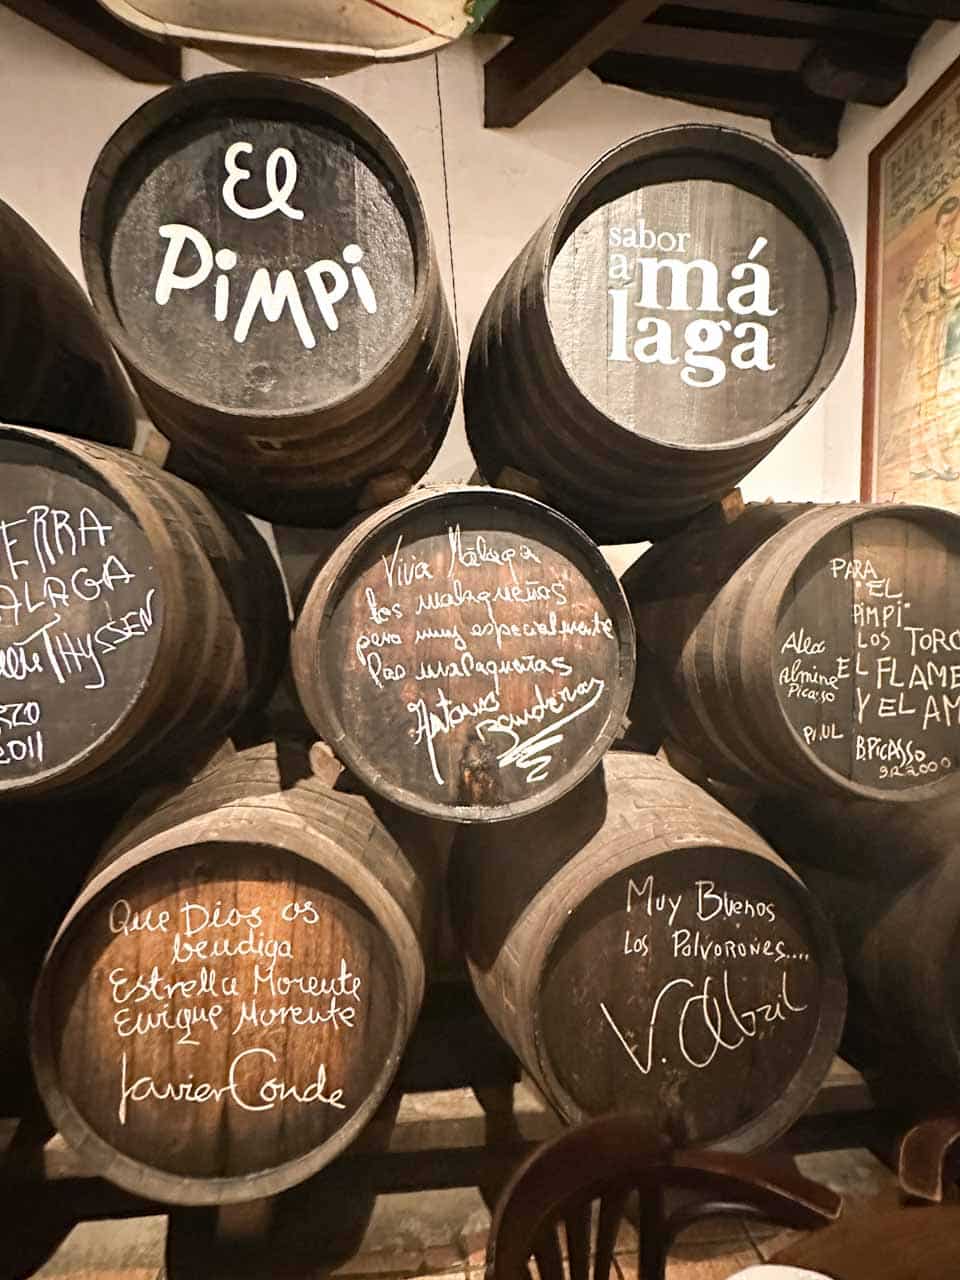 El
Pimpi
sabor
a má
laga
PLAZA DE
TOROS
ERRA
ALAGA
THYSSEN
RZO
2011
Viva Málaga
los malagueños
pero muy especialmente
las malagueñas
Antonio
Banderas
PARA
EL
PIMPI
LOS TORO
EL FLAME
Y EL AM
B.PICASSO
9.R.2000
Alex
Almine
Picasso
PAUL
Que Dios os
bendiga
Estrella Morente
Enrique Morente
Javier Conde
Muy Buenos
Los Polvorones....
V. Abril